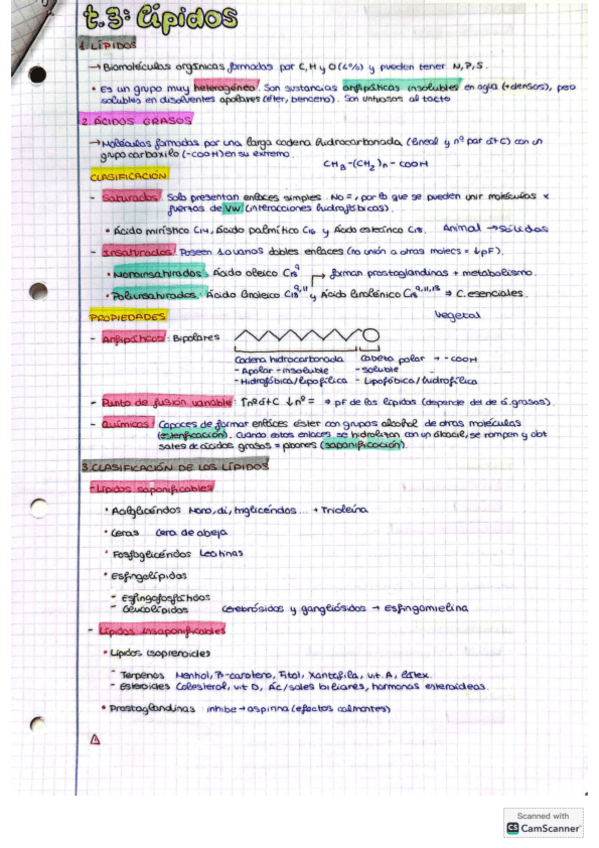 t.3: Lípidos
1. LÍPIDOS
→ Biomoléculas orgánicas formadas por C, H y O (↓%) y pueden tener N, P, S.
• Es un grupo muy heterogéneo. Son sustancias anfipáticas insolubles en agua (+densos), pero
solubles en disolventes apolares (éter, benceno). Son untuosos al tacto
2. ÁCIDOS GRASOS
→ Moléculas formadas por una larga cadena hidrocarbonada (lineal y nº par át C) con un
grupo carboxilo (-COOH) en su extremo.
CH3-(CH2)n-COOH
CLASIFICACIÓN
- Saturados: Solo presentan enlaces simples. No =, por lo que se pueden unir moléculas x
fuerzas de VW (interacciones hidrofóbicas).
• Ácido mirístico C14, ácido palmítico C16 y ácido esteárico C18. Animal → sólidos
- Insaturados: Poseen 1 o varios dobles enlaces (no unión a otras molecs = ↓pF).
• Monoinsaturados: Ácido oleico C18 9 → forman prostaglandinas + metabolismo.
• Poliinsaturados: Ácido linoleico C18 9,11 y Ácido linolénico C18 9,11,13 ⇒ C. esenciales.
vegetal
PROPIEDADES
- Anfipáticos: Bipolares
Cadena hidrocarbonada Cabeza polar → -COOH
- Apolar - insoluble - soluble
- Hidrofóbica/lipofílica - Lipofóbica/hidrofílica
- Punto de fusión variable: ↑nº át C ↓ nº = ⇒ pF de los lípidos (depende del de á. grasos).
- Químicas: Capaces de formar enlaces éster con grupos alcohol de otras moléculas
(esterificación). Cuando estos enlaces se hidrolizan con un álcali, se rompen y obt
sales de ácidos grasos = jabones (saponificación).
3. CLASIFICACIÓN DE LOS LÍPIDOS
- Lípidos saponificables
• Acilglicéridos Mono, di, triglicéridos ... → Trioleína
• Ceras Cera de abeja
• Fosfoglicéridos Lecitinas
• Esfingolípidos
- Esfingofosfátidos
- Glucolípidos Cerebrósidos y gangliósidos → Esfingomielina
- Lípidos insaponificables
• Lípidos isoprenoides
- Terpenos Menhol, β-caroteno, Fitol, Xantofila, vit. A, látex.
- Esteroides Colesterol, vit D, ác/sales biliares, hormonas esteroideas.
• Prostaglandinas inhibe → aspirina (efectos calmantes)
Scanned with
CS CamScanner